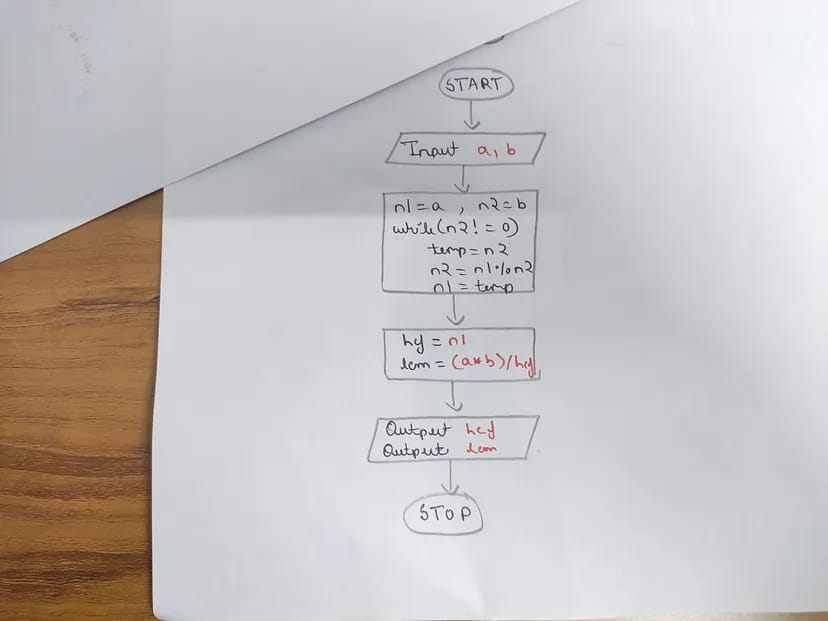 START
Input a, b
n1 = a , n2 = b
while(n2! = 0)
temp = n2
n2 = n1 % n2
n1 = temp
hcf = n1
lcm = (a*b)/hcf
Output hcf
Output lcm
STOP